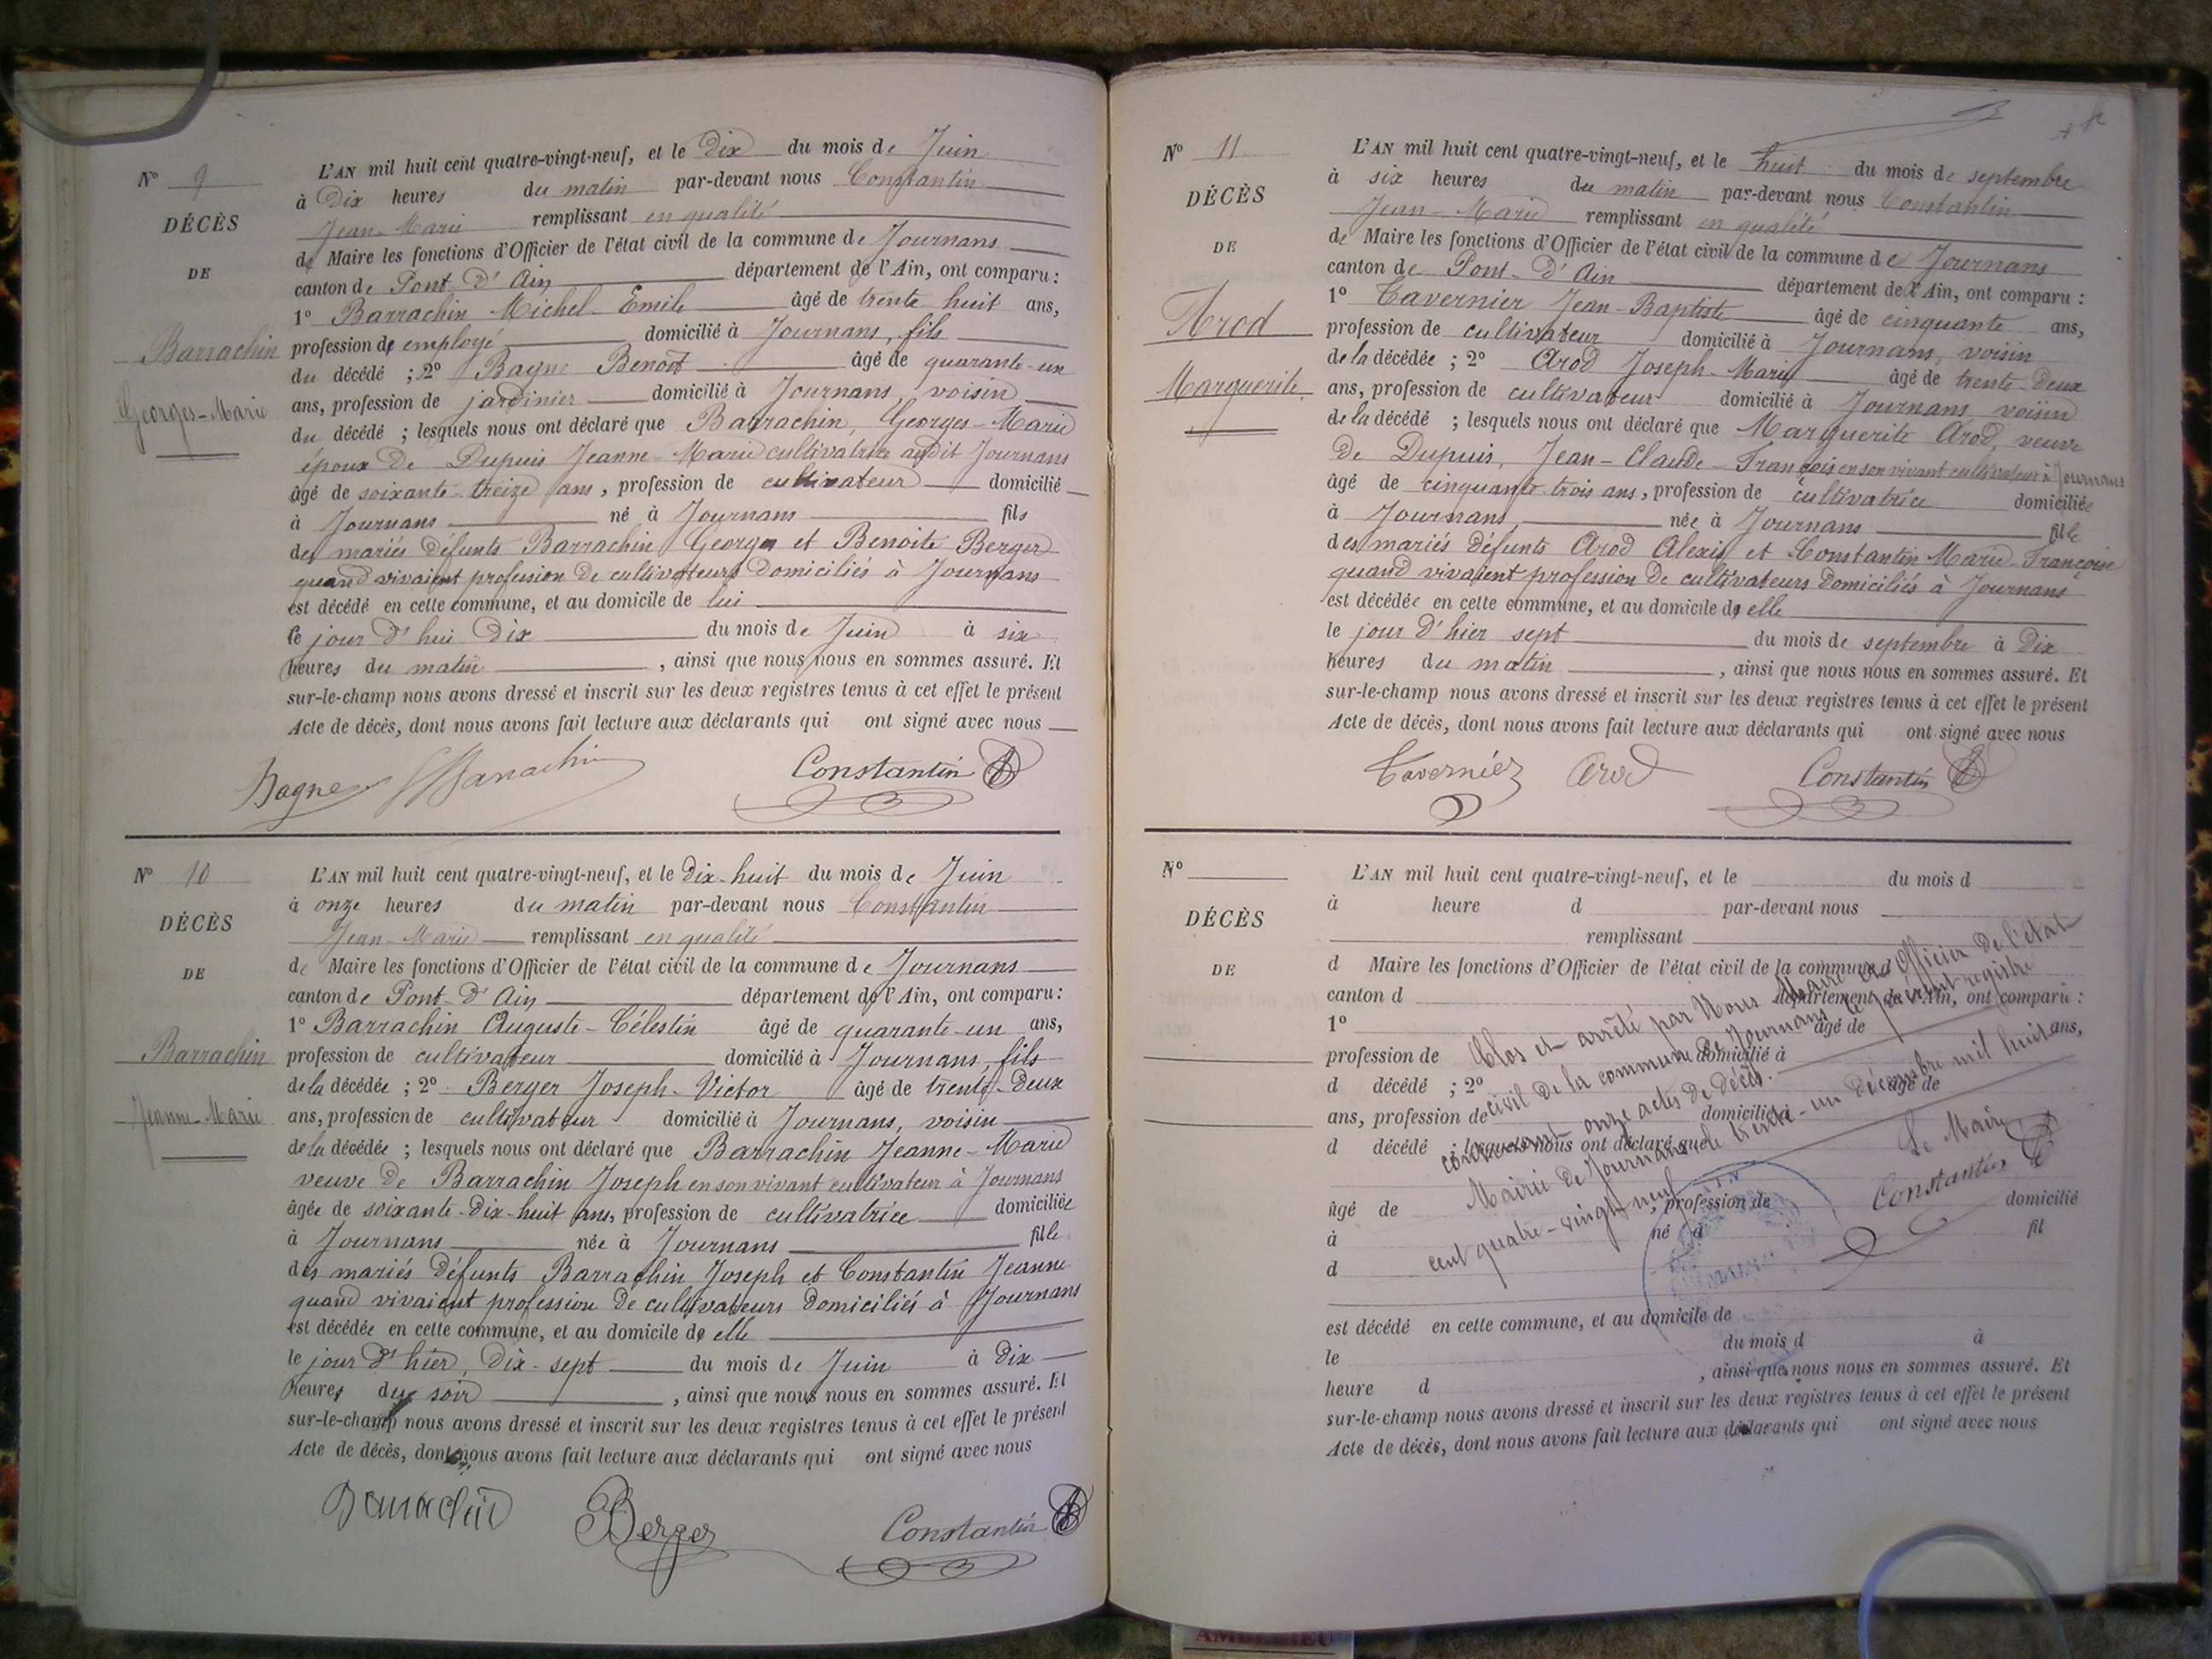 N° 9
DÉCÈS
DE
Barrachin
Georges-Marie
L'AN mil huit cent quatre-vingt-neuf, et le Dix du mois de Juin
à Dix heures du matin par-devant nous Constantin
Jean-Marie remplissant en qualité
de Maire les fonctions d'Officier de l'état civil de la commune de Journans
canton de Pont-d'Ain département de l'Ain, ont comparu :
1° Barrachin Michel-Emile âgé de trente huit ans,
profession de employé domicilié à Journans, fils
du décédé ; 2° Bagne Benoit âgé de quarante-un
ans, profession de jardinier domicilié à Journans, voisin
du décédé ; lesquels nous ont déclaré que Barrachin, Georges-Marie
époux de Dupuis Jeanne-Marie cultivatrice audit Journans
âgé de soixante-treize ans, profession de cultivateur domicilié
à Journans né à Journans fils
des mariés défunts Barrachin Georges et Benoite Berger
quand vivaient profession de cultivateurs domiciliés à Journans
est décédé en cette commune, et au domicile de lui
le jour d'hui Dix du mois de Juin à six
heures du matin , ainsi que nous nous en sommes assuré. Et
sur-le-champ nous avons dressé et inscrit sur les deux registres tenus à cet effet le présent
Acte de décès, dont nous avons fait lecture aux déclarants qui ont signé avec nous
Bagne Barrachin Constantin
N° 10
DÉCÈS
DE
Barrachin
Jeanne-Marie
L'AN mil huit cent quatre-vingt-neuf, et le Dix-huit du mois de Juin
à onze heures du matin par-devant nous Constantin
Jean-Marie remplissant en qualité
de Maire les fonctions d'Officier de l'état civil de la commune de Journans
canton de Pont-d'Ain département de l'Ain, ont comparu :
1° Barrachin Auguste-Célestin âgé de quarante-un ans,
profession de cultivateur domicilié à Journans, fils
de la décédée ; 2° Berger Joseph-Victor âgé de trente-deux
ans, profession de cultivateur domicilié à Journans, voisin
de la décédée ; lesquels nous ont déclaré que Barrachin Jeanne-Marie
veuve de Barrachin Joseph en son vivant cultivateur à Journans
âgée de soixante-dix-huit ans, profession de cultivatrice domiciliée
à Journans née à Journans fille
des mariés défunts Barrachin Joseph et Constantin Jeanne
quand vivaient profession de cultivateurs domiciliés à Journans
est décédée en cette commune, et au domicile de elle
le jour d'hier, Dix-sept du mois de Juin à Dix
heures du soir , ainsi que nous nous en sommes assuré. Et
sur-le-champ nous avons dressé et inscrit sur les deux registres tenus à cet effet le présent
Acte de décès, dont nous avons fait lecture aux déclarants qui ont signé avec nous
Barrachin Berger Constantin
N° 11
DÉCÈS
DE
Arod
Marguerite
L'AN mil huit cent quatre-vingt-neuf, et le huit du mois de septembre
à six heures du matin par-devant nous Constantin
Jean-Marie remplissant en qualité
de Maire les fonctions d'Officier de l'état civil de la commune de Journans
canton de Pont-d'Ain département de l'Ain, ont comparu :
1° Tavernier Jean-Baptiste âgé de cinquante ans,
profession de cultivateur domicilié à Journans, voisin
de la décédée ; 2° Arod Joseph-Marie âgé de trente-deux
ans, profession de cultivateur domicilié à Journans voisin
de la décédé ; lesquels nous ont déclaré que Marguerite Arod, veuve
de Dupuis, Jean-Claude-François en son vivant cultivateur à Journans
âgé de cinquante-trois ans, profession de cultivatrice domiciliée
à Journans, née à Journans fille
des mariés défunts Arod Alexis et Constantin Marie-Françoise
quand vivaient profession de cultivateurs domiciliés à Journans
est décédée en cette commune, et au domicile de elle
le jour d'hier sept du mois de septembre à Dix
heures du matin , ainsi que nous nous en sommes assuré. Et
sur-le-champ nous avons dressé et inscrit sur les deux registres tenus à cet effet le présent
Acte de décès, dont nous avons fait lecture aux déclarants qui ont signé avec nous
Tavernier Arod Constantin
N°
DÉCÈS
DE
L'AN mil huit cent quatre-vingt-neuf, et le du mois d
à heure d par-devant nous
remplissant
d Maire les fonctions d'Officier de l'état civil de la commune d
canton d département de l'Ain, ont comparu :
1° âgé de ans,
profession de domicilié à
d décédé ; 2° âgé de
ans, profession de domicilié à
d décédé ; lesquels nous ont déclaré que
âgé de , profession de domicilié
à né à fil
d
est décédé en cette commune, et au domicile de
le du mois d à
heure d , ainsi que nous nous en sommes assuré. Et
sur-le-champ nous avons dressé et inscrit sur les deux registres tenus à cet effet le présent
Acte de décès, dont nous avons fait lecture aux déclarants qui ont signé avec nous
Clos et arrêté par Nous Maire et Officier de l'état
civil de la commune de Journans le présent registre
contenant onze actes de décès.
Mairie de Journans le trente-un décembre mil huit
cent quatre-vingt neuf
Le Maire
Constantin
AMBERIEU